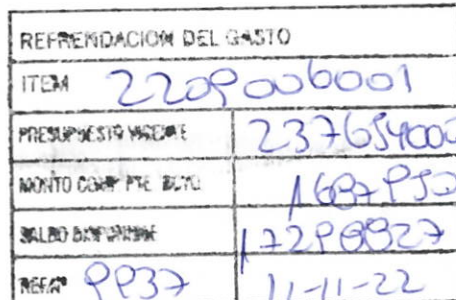 REFRENDACION DEL GASTO
ITEM 2209006001
PRESUPUESTO VIGENTE 237654000
MONTO COMP PTE DCTO
SALDO DISPONIBLE
REF.Nº 9937 11-11-22